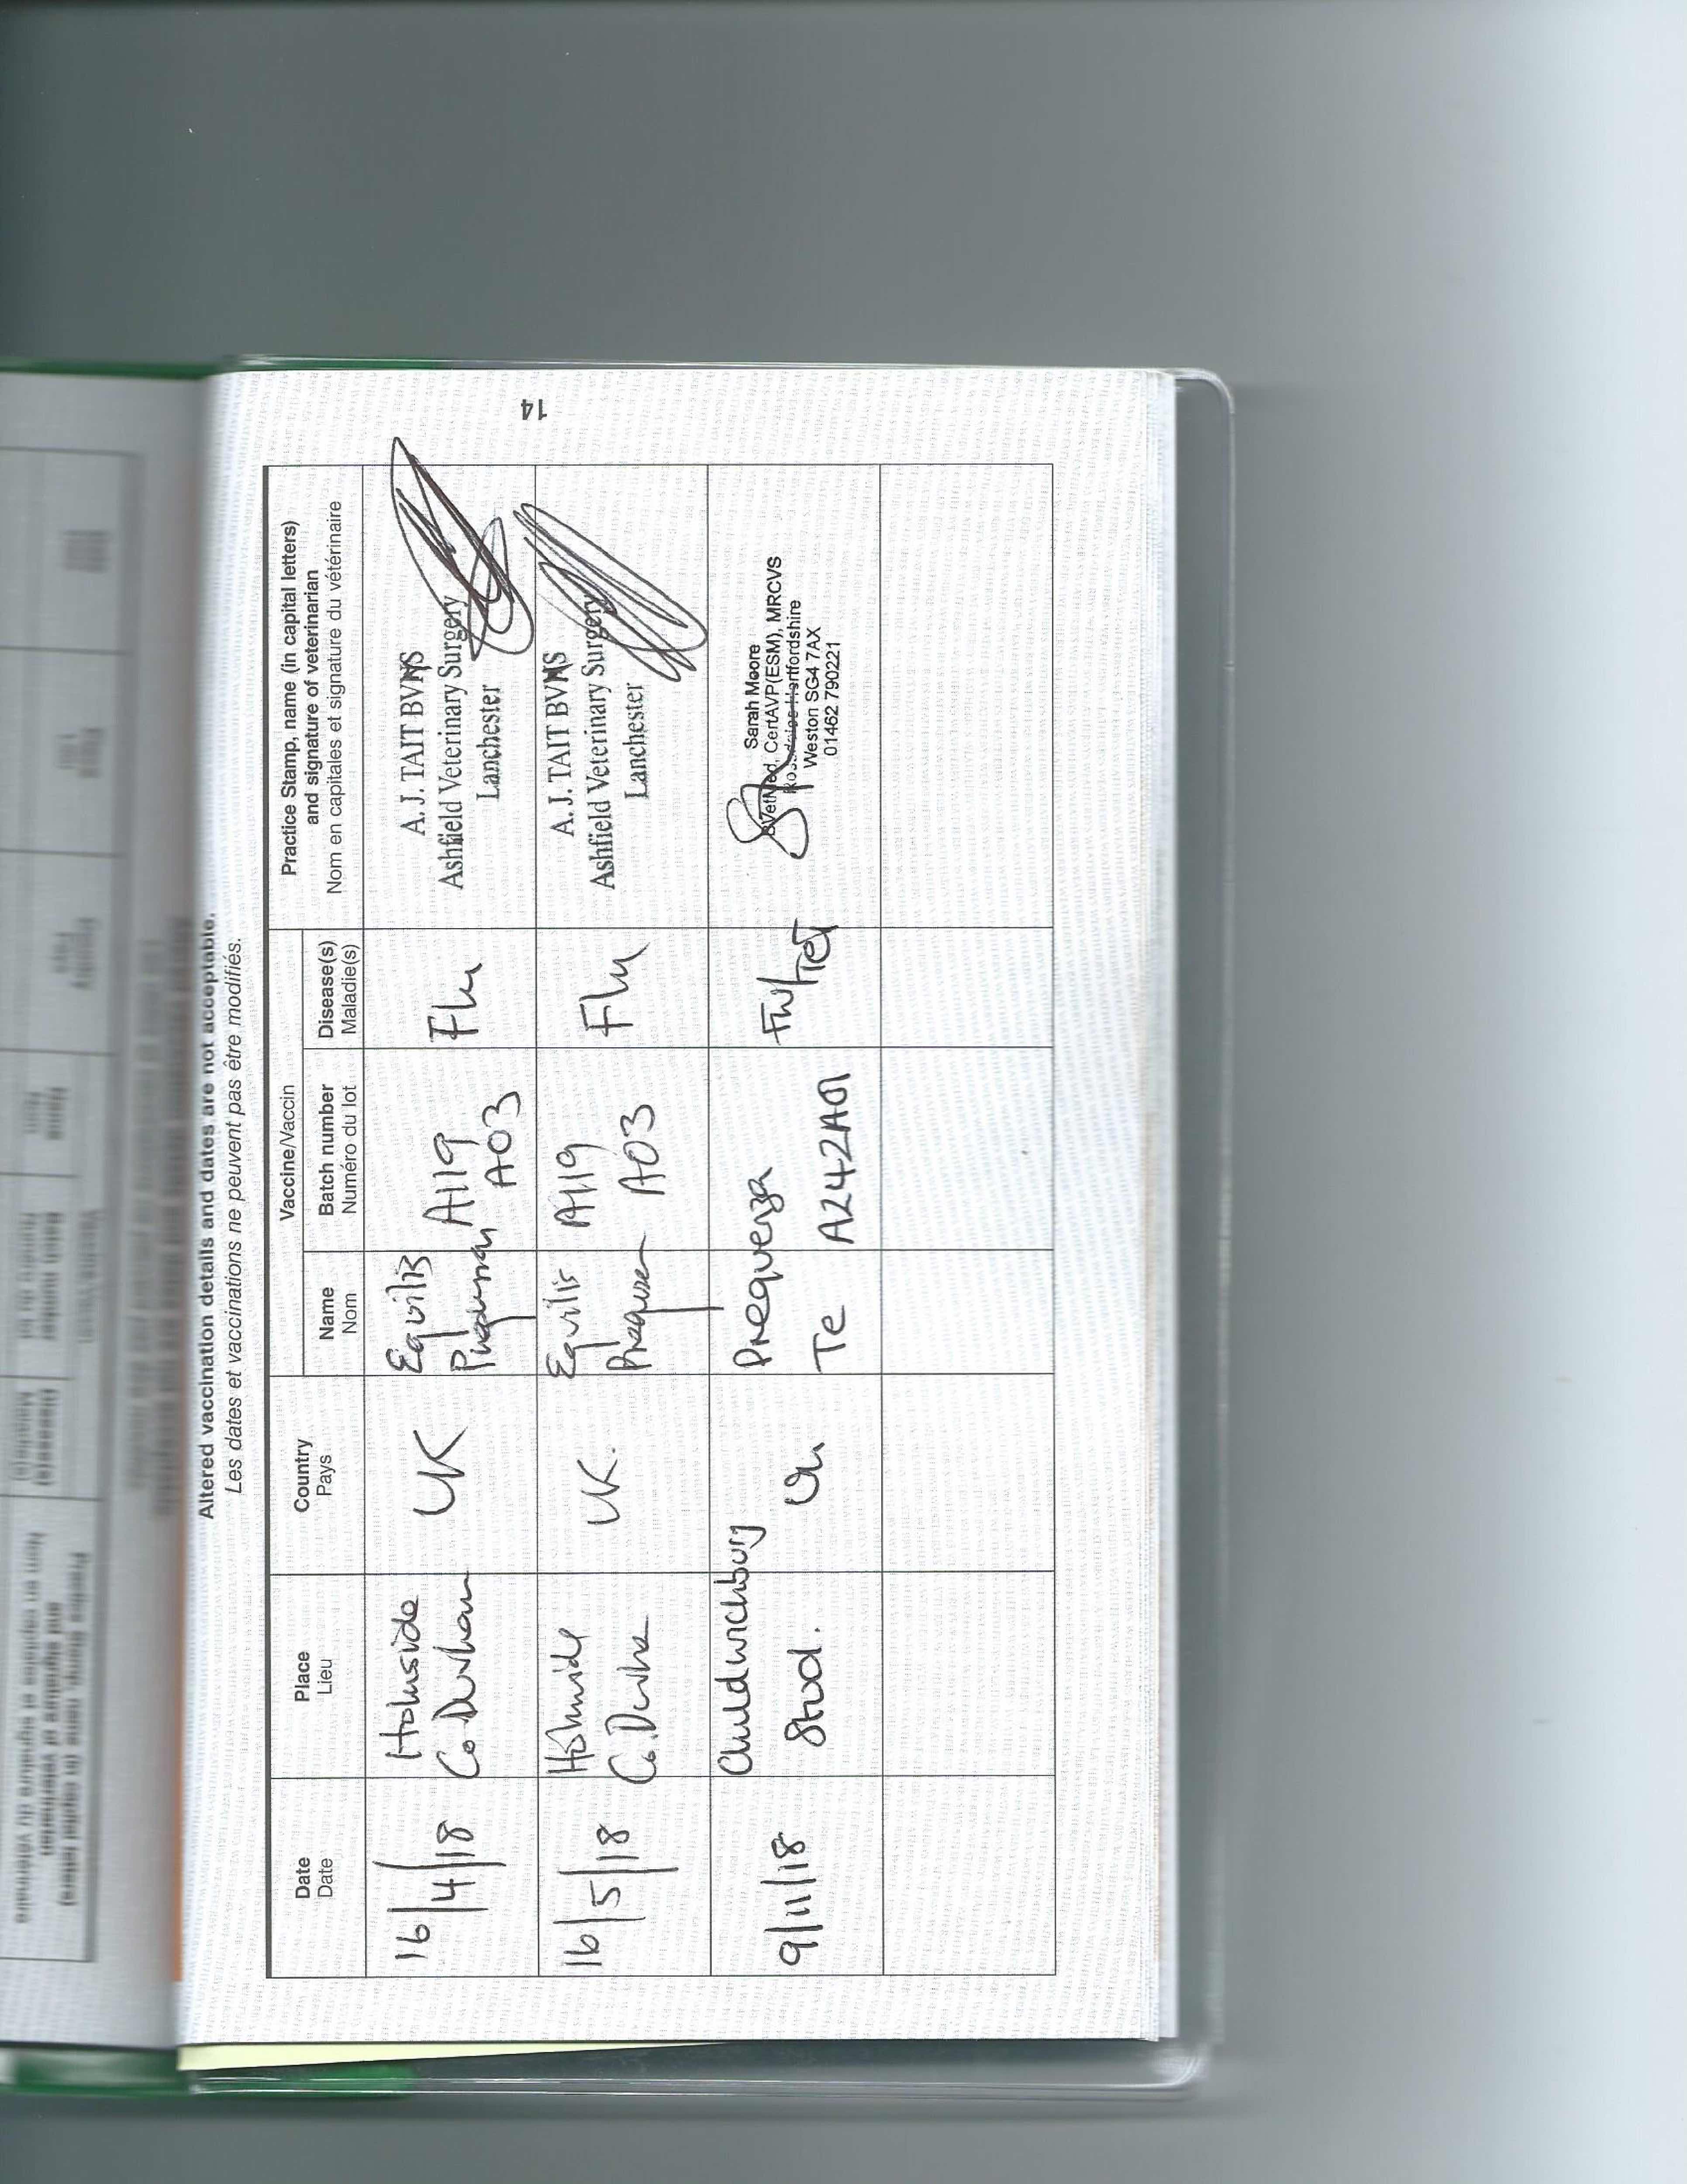 Altered vaccination details and dates are not acceptable.
Les dates et vaccinations ne peuvent pas être modifiés.
Date
Date
Place
Lieu
Country
Pays
Vaccine/Vaccin
Name
Nom
Batch number
Numéro du lot
Disease(s)
Maladie(s)
Practice Stamp, name (in capital letters)
and signature of veterinarian
Nom en capitales et signature du vétérinaire
16/4/18
Holmside
Co Durham
UK
Equilis
A119
A03
Flu
A. J. TAIT BVMS
Ashfield Veterinary Surgery
Lanchester
16/5/18
Holmside
Co. Durha
UK.
Equilis
A119
A03
Flu
A. J. TAIT BVMS
Ashfield Veterinary Surgery
Lanchester
9/11/18
Stud.
UK
Prequenza
Te
A242A01
Flu/Tet
Sarah Moore
BVetMed, CertAVP(ESM), MRCVS
Hertfordshire
Weston SG4 7AX
01462 790221
14